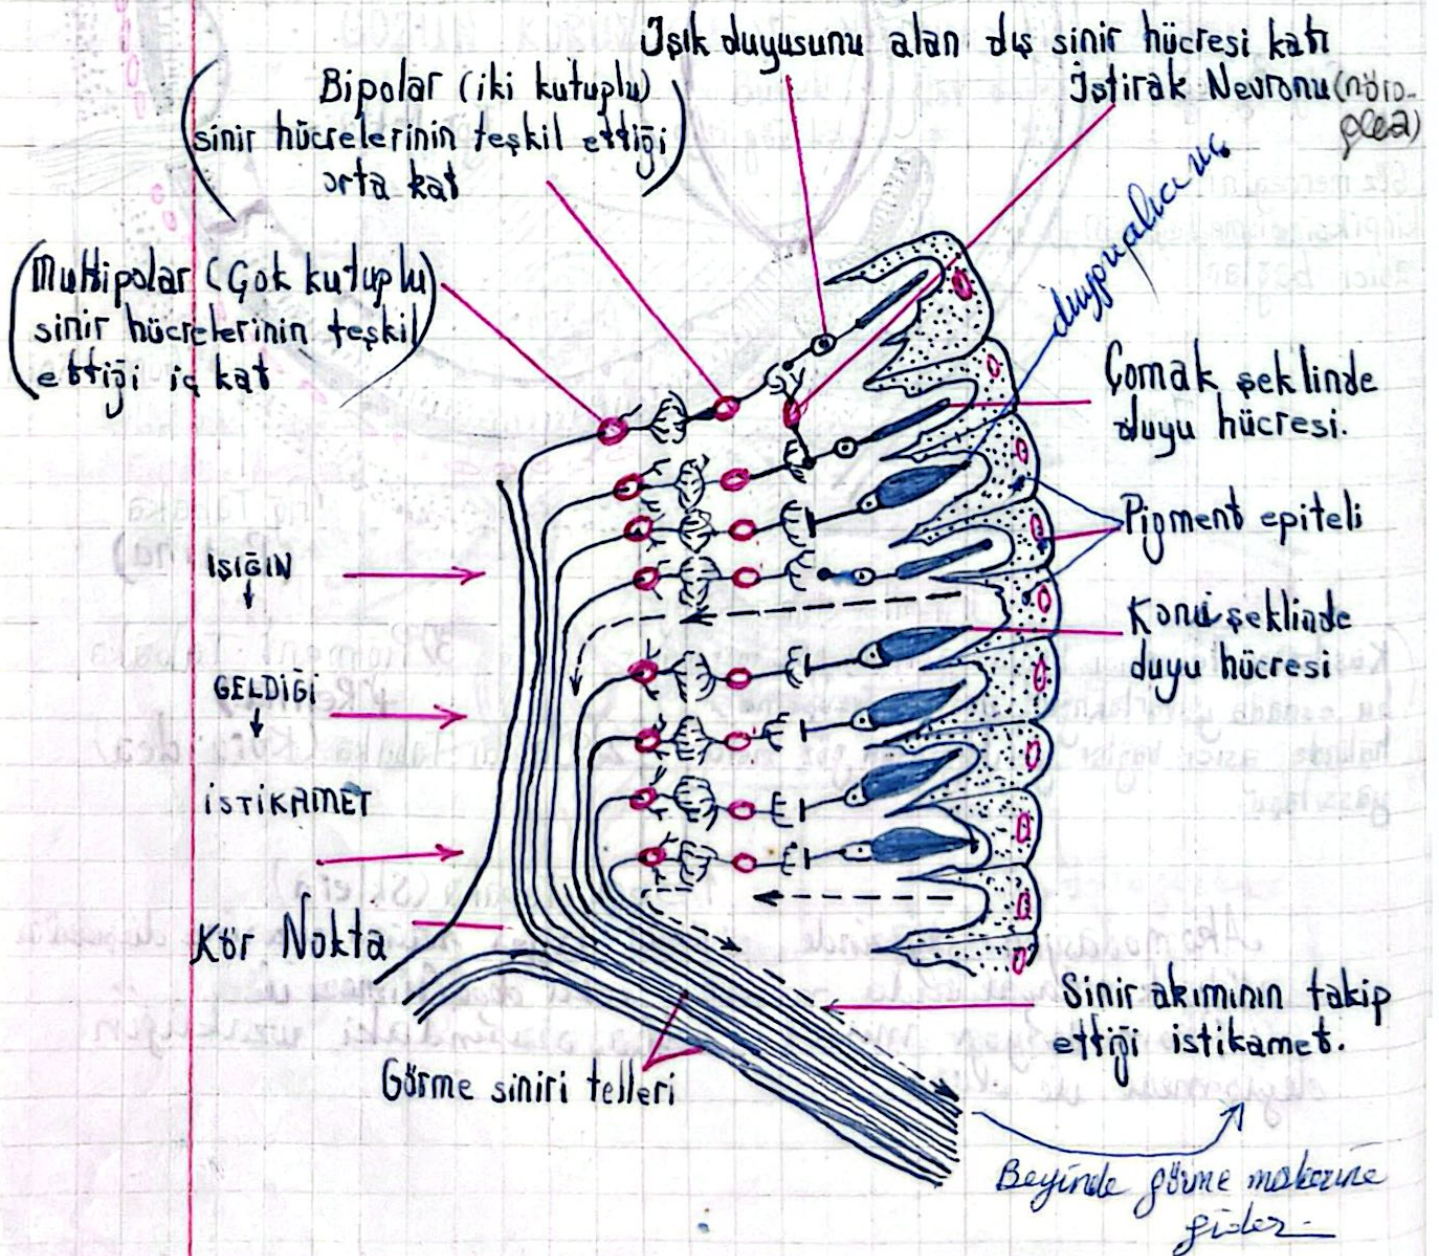 Işık duyusunu alan dış sinir hücresi katı
İstirak Nevronu (nöro-
glea)
Bipolar (iki kutuplu)
sinir hücrelerinin teşkil ettiği
orta kat
Multipolar (Çok kutuplu)
sinir hücrelerinin teşkil
ettiği iç kat
duyguyu alıcı uç
Çomak şeklinde
duyu hücresi.
Pigment epiteli
Koni şeklinde
duyu hücresi
IŞIĞIN
GELDİĞİ
İSTİKAMET
Kör Nokta
Sinir akımının takip
ettiği istikamet.
Görme siniri telleri
Beyinde görme merkezine
gider